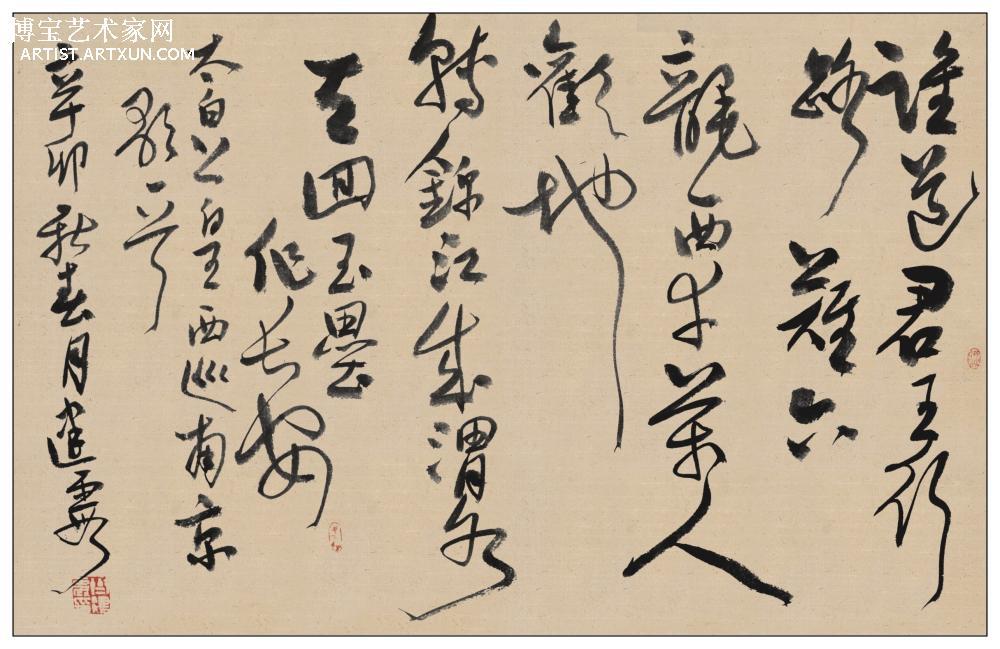 博宝艺术家网
ARTIST.ARTXUN.COM
誰道君王行
路難六
龍西幸萬人
歡地
轉錦江成渭水
天回玉壘
作長安
太白上皇西巡南京
歌一首
辛卯春月建霞